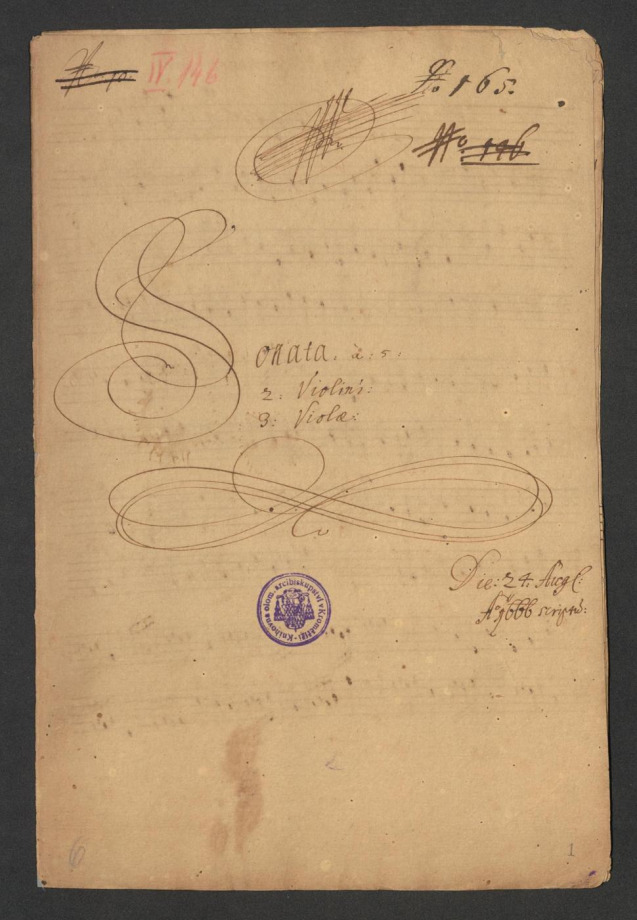 IV 146
No 165.
No. 146
Sonata. à: 5:
2: Violini:
3: Violæ:
Die: 24. Aug(:
Ao 1666 scripta:
Knihovna olom. arcibiskupství v Kroměříži
6
1